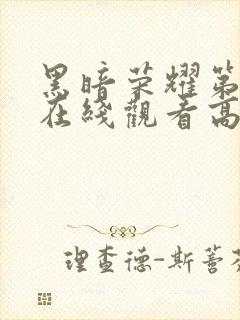 黑暗荣耀第
在綫觀看高
理查德-斯蒈